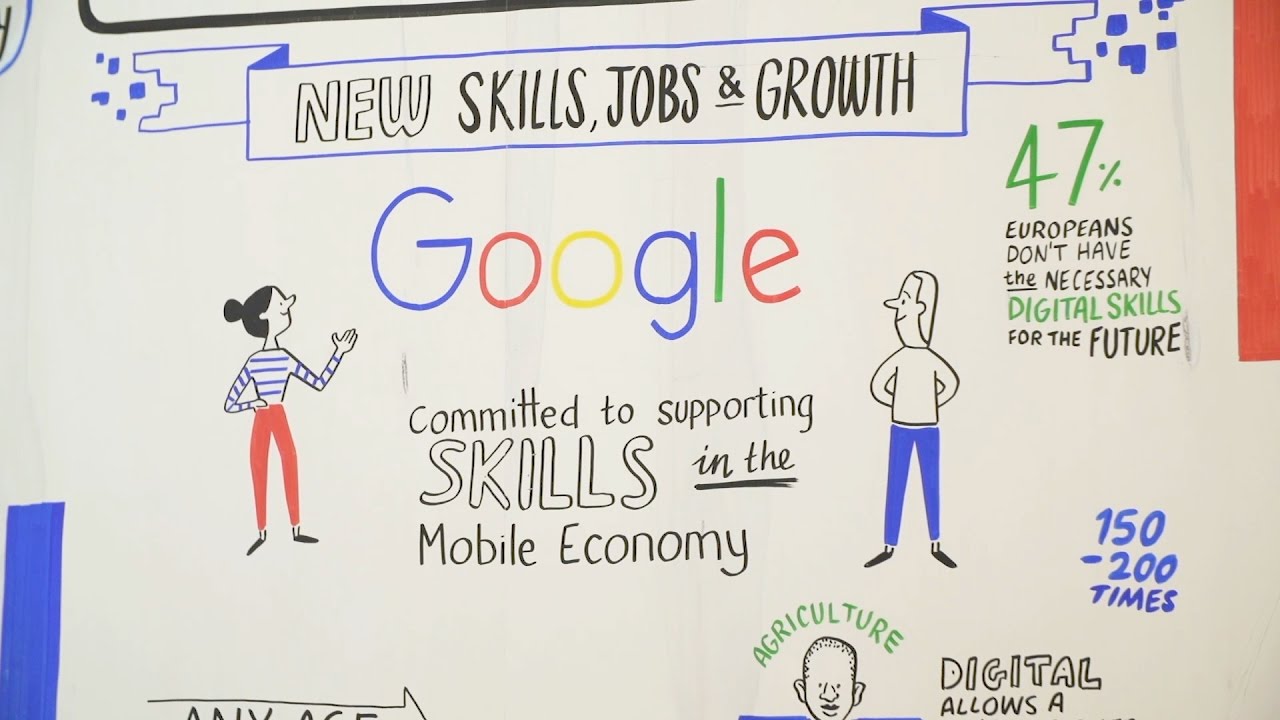 NEW SKILLS, JOBS & GROWTH
Google
47%
EUROPEANS
DON'T HAVE
the NECESSARY
DIGITAL SKILLS
FOR THE FUTURE
Committed to supporting
SKILLS in the
Mobile Economy
150
-200
TIMES
AGRICULTURE
DIGITAL
ALLOWS A
ANY AGE